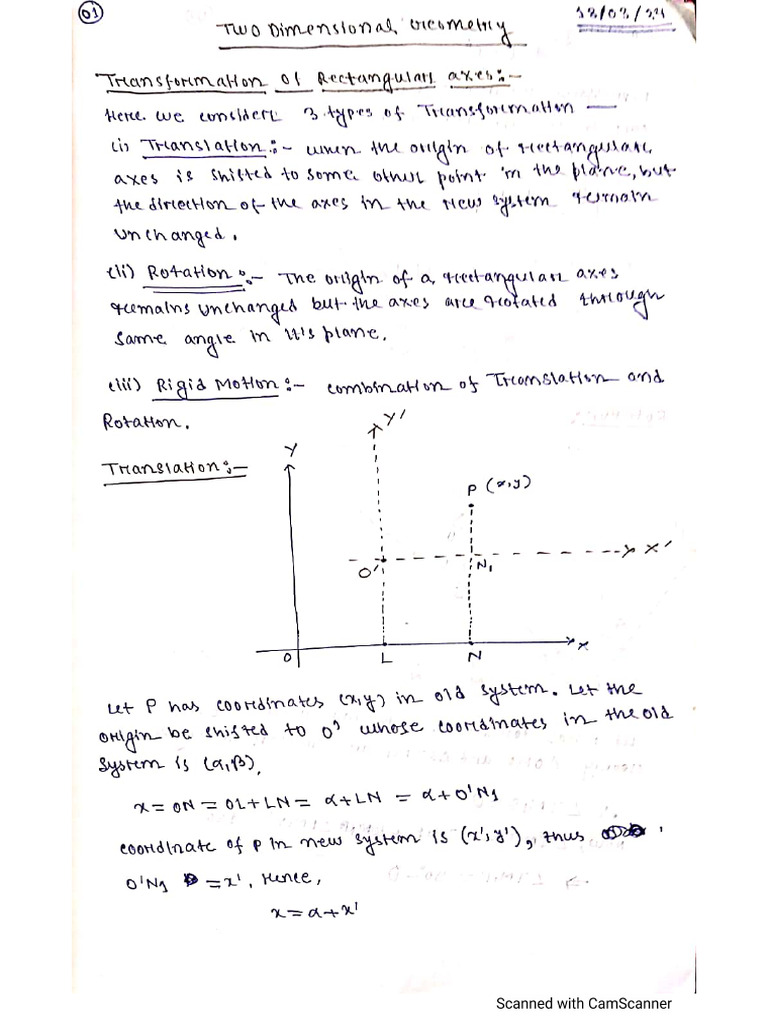 01
12/02/24
Two Dimensional Geometry
Transformation of Rectangular axes:-
Here we consider 3 types of Transformation —
(i) Translation:- when the origin of rectangular
axes is shifted to some other point in the plane, but
the direction of the axes in the new system remain
unchanged.
(ii) Rotation:- The origin of a rectangular axes
remains unchanged but the axes are rotated through
same angle in it's plane.
(iii) Rigid Motion:- combination of Translation and
Rotation.
Translation:-
Y'
Y
P (x,y)
X'
O'
N₁
X
O
L
N
Let P has coordinates (x,y) in old system. Let the
origin be shifted to O' whose coordinates in the old
system is (α,β).
x = ON = OL + LN = α + LN = α + O'N₁
coordinate of P in new system is (x', y'), thus
O'N₁ = x'. Hence,
x = α + x'
Scanned with CamScanner